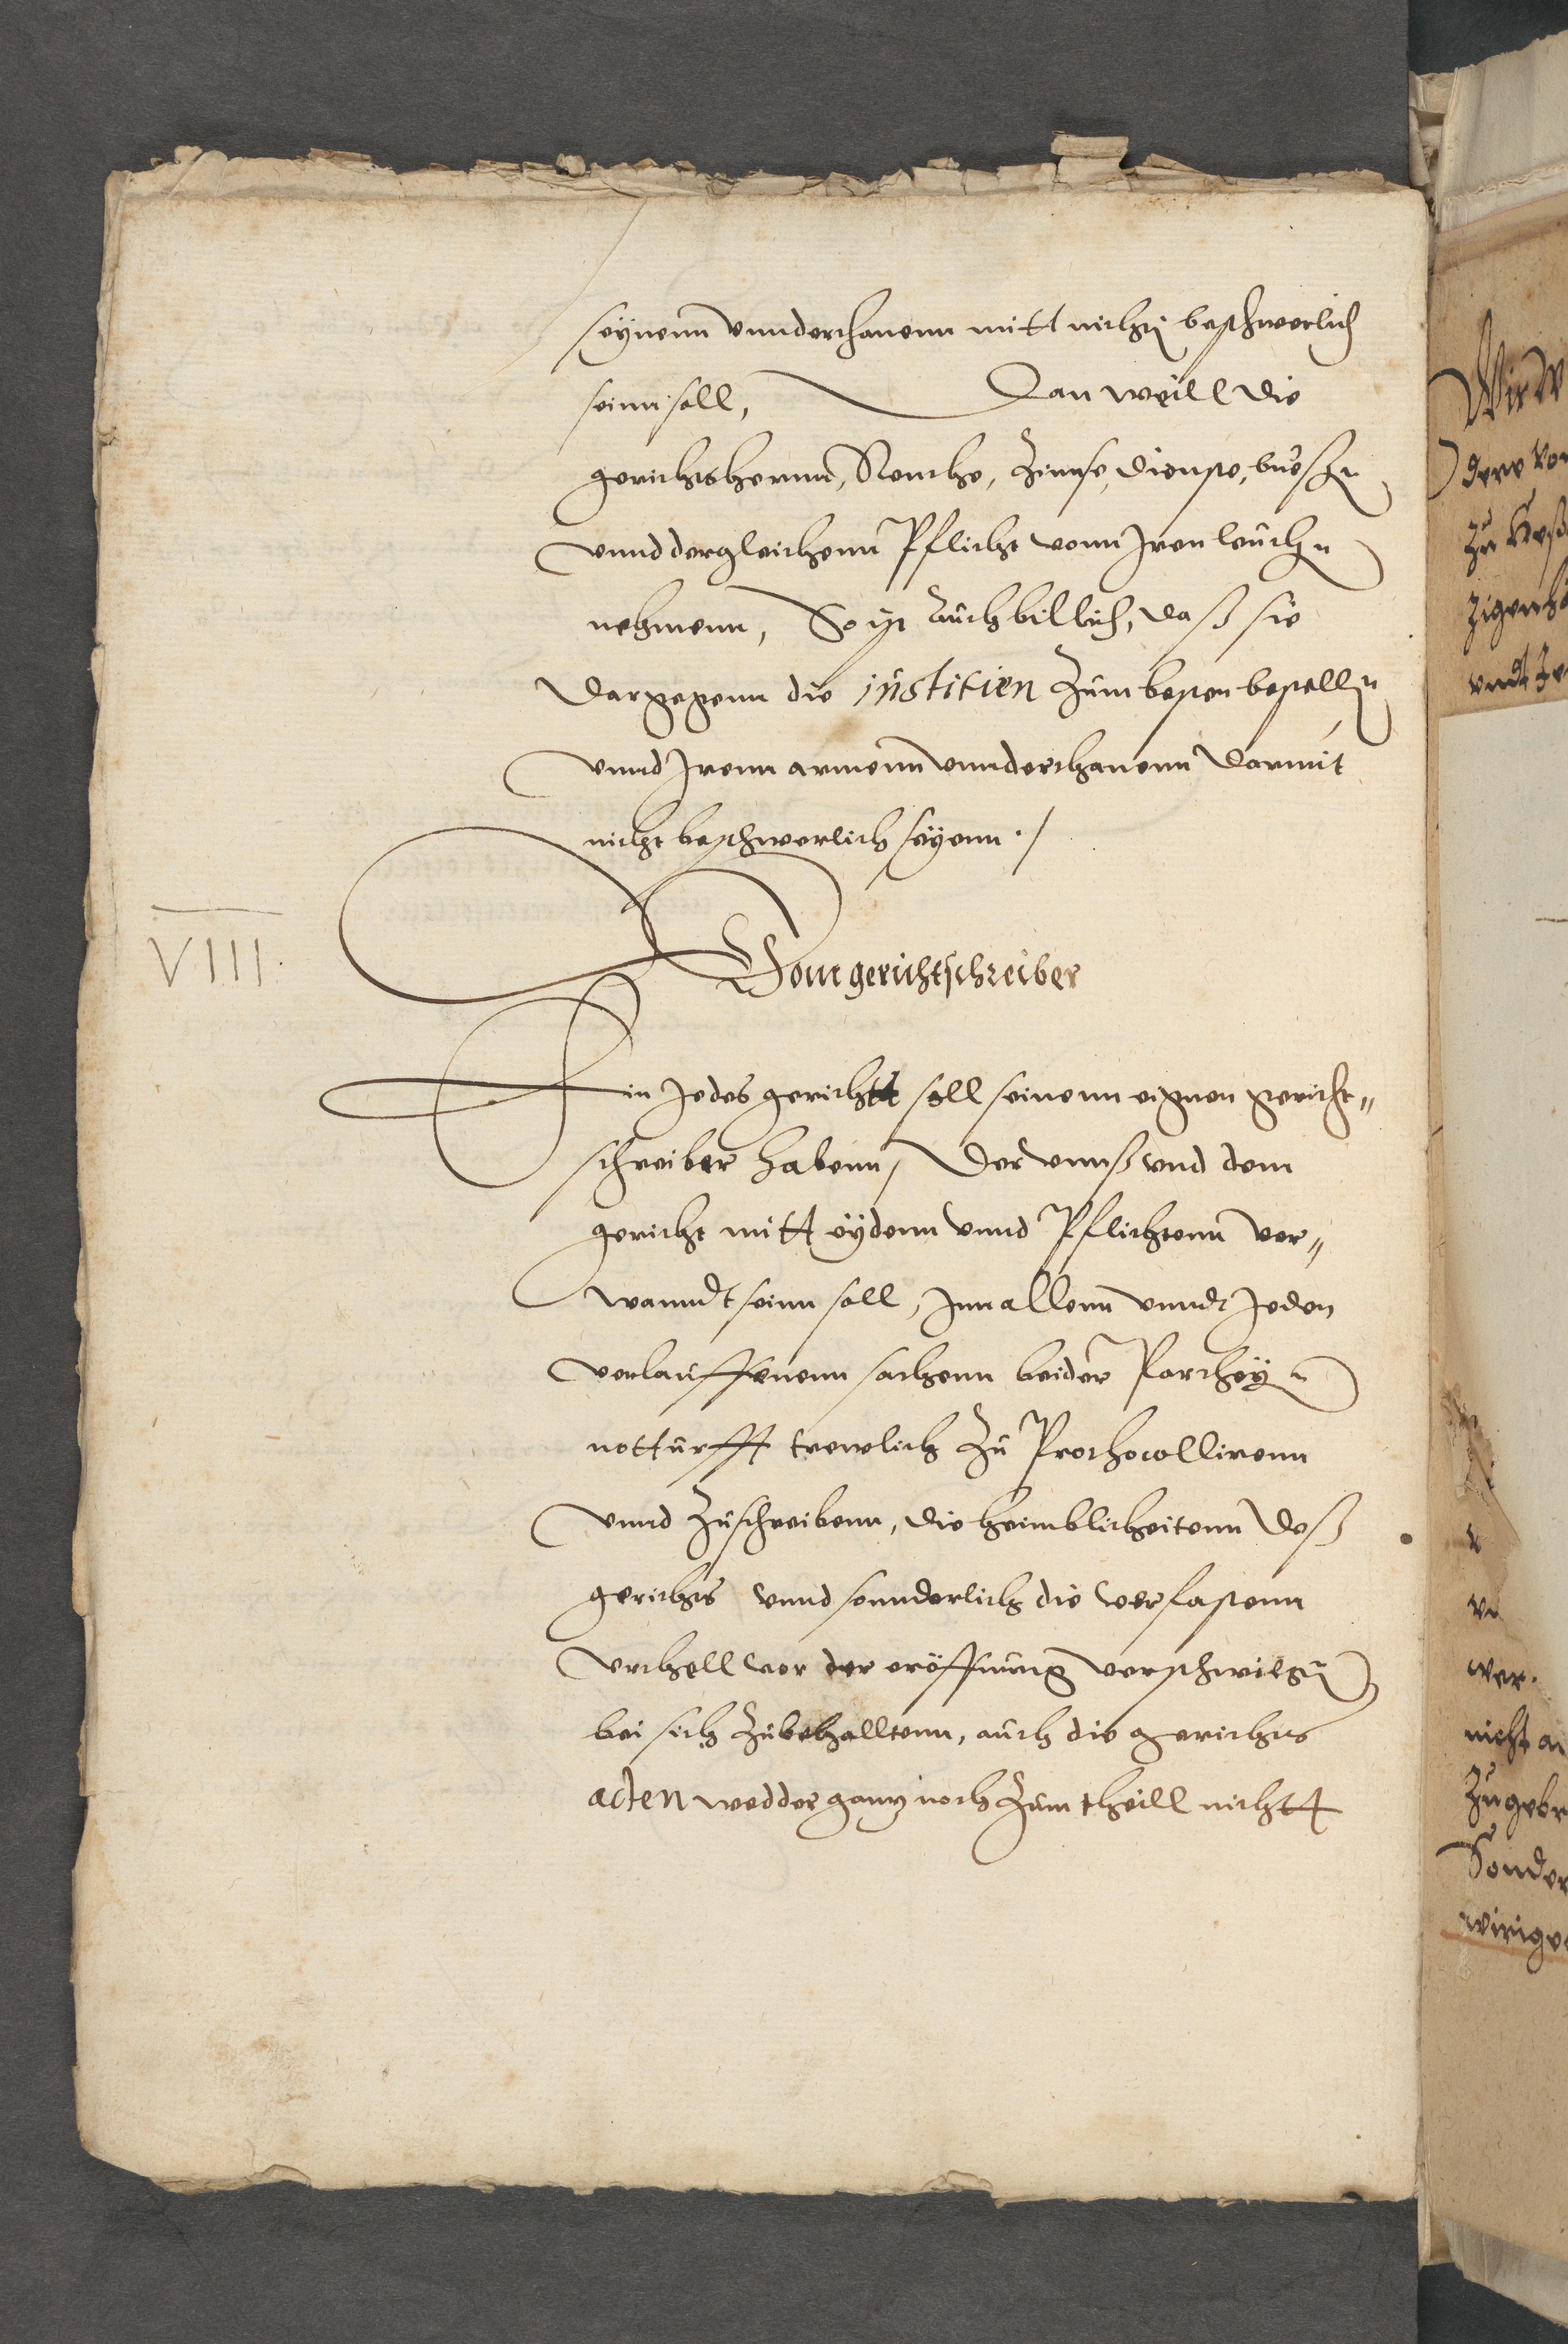 seynenn vnnderthanenn mitt nichtᷓ beschwerlich
seinn soll, Dan weill die
gerichtshernn, Renthe, Zinnse, dienste, buessᷓ
vnnd dergleichenn Pflicht vonn Jren leuthᷓ
nehmenn, So ist auch billich, daß sie
dargegenn die iustitien zum besten bestellᷓ
vnnd Jrenn armenn vnnderthanenn darmit
nicht beschwerlich seyenn ./
VIII.
Vom gerichtschreiber
Ein Jedes gerichtt soll seinenn eignen gericht„
schreiber habenn, Der vnnß vnd dem
gericht mitt eydenn vnnd Pflichtenn ver„
wanndt seinn soll, Jnn allenn vnndt Jeden
verlauffenenn sachenn beider Partheyᷓ
notturfft trewlich zu Prothocollirenn
vnnd zuschreibenn, die heimblicheitenn deß
gerichts vnnd sonnderlich die verfastenn
vrthell vor der eröffnung verschwigᷓ
bei sich zubehalltenn, auch die gerichts
acten wedder ganz noch zum theill nichtt
Wir W
dere von
zu
zigenh
vndt Je
v
ve
wer.
nicht a
zu gebr
Sonder
wirige